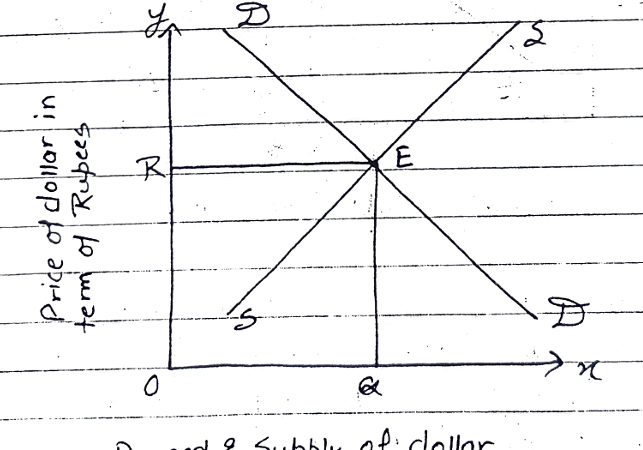 y
D
S
Price of dollar in
term of Rupees
R
E
S
D
O
Q
x
Demand & Supply of dollar